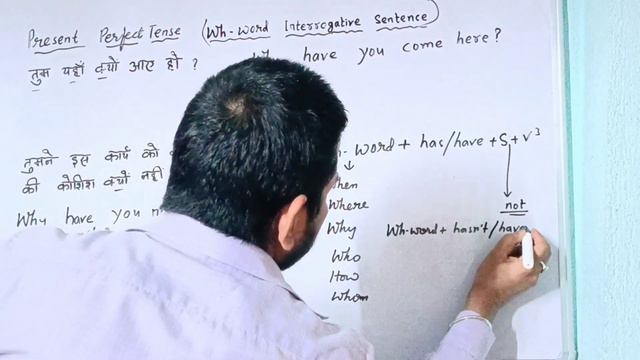 Present Perfect Tense (Wh-word Interrogative Sentence)
have you come here?
तुम यहाँ क्यों आए हो ?
word + has/have + S + V³
तुमने इस कार्य को
की कोशिश क्यों नहीं
Where
not
Why have you
Why
Wh-word + hasn't/have
Who
How
Whom